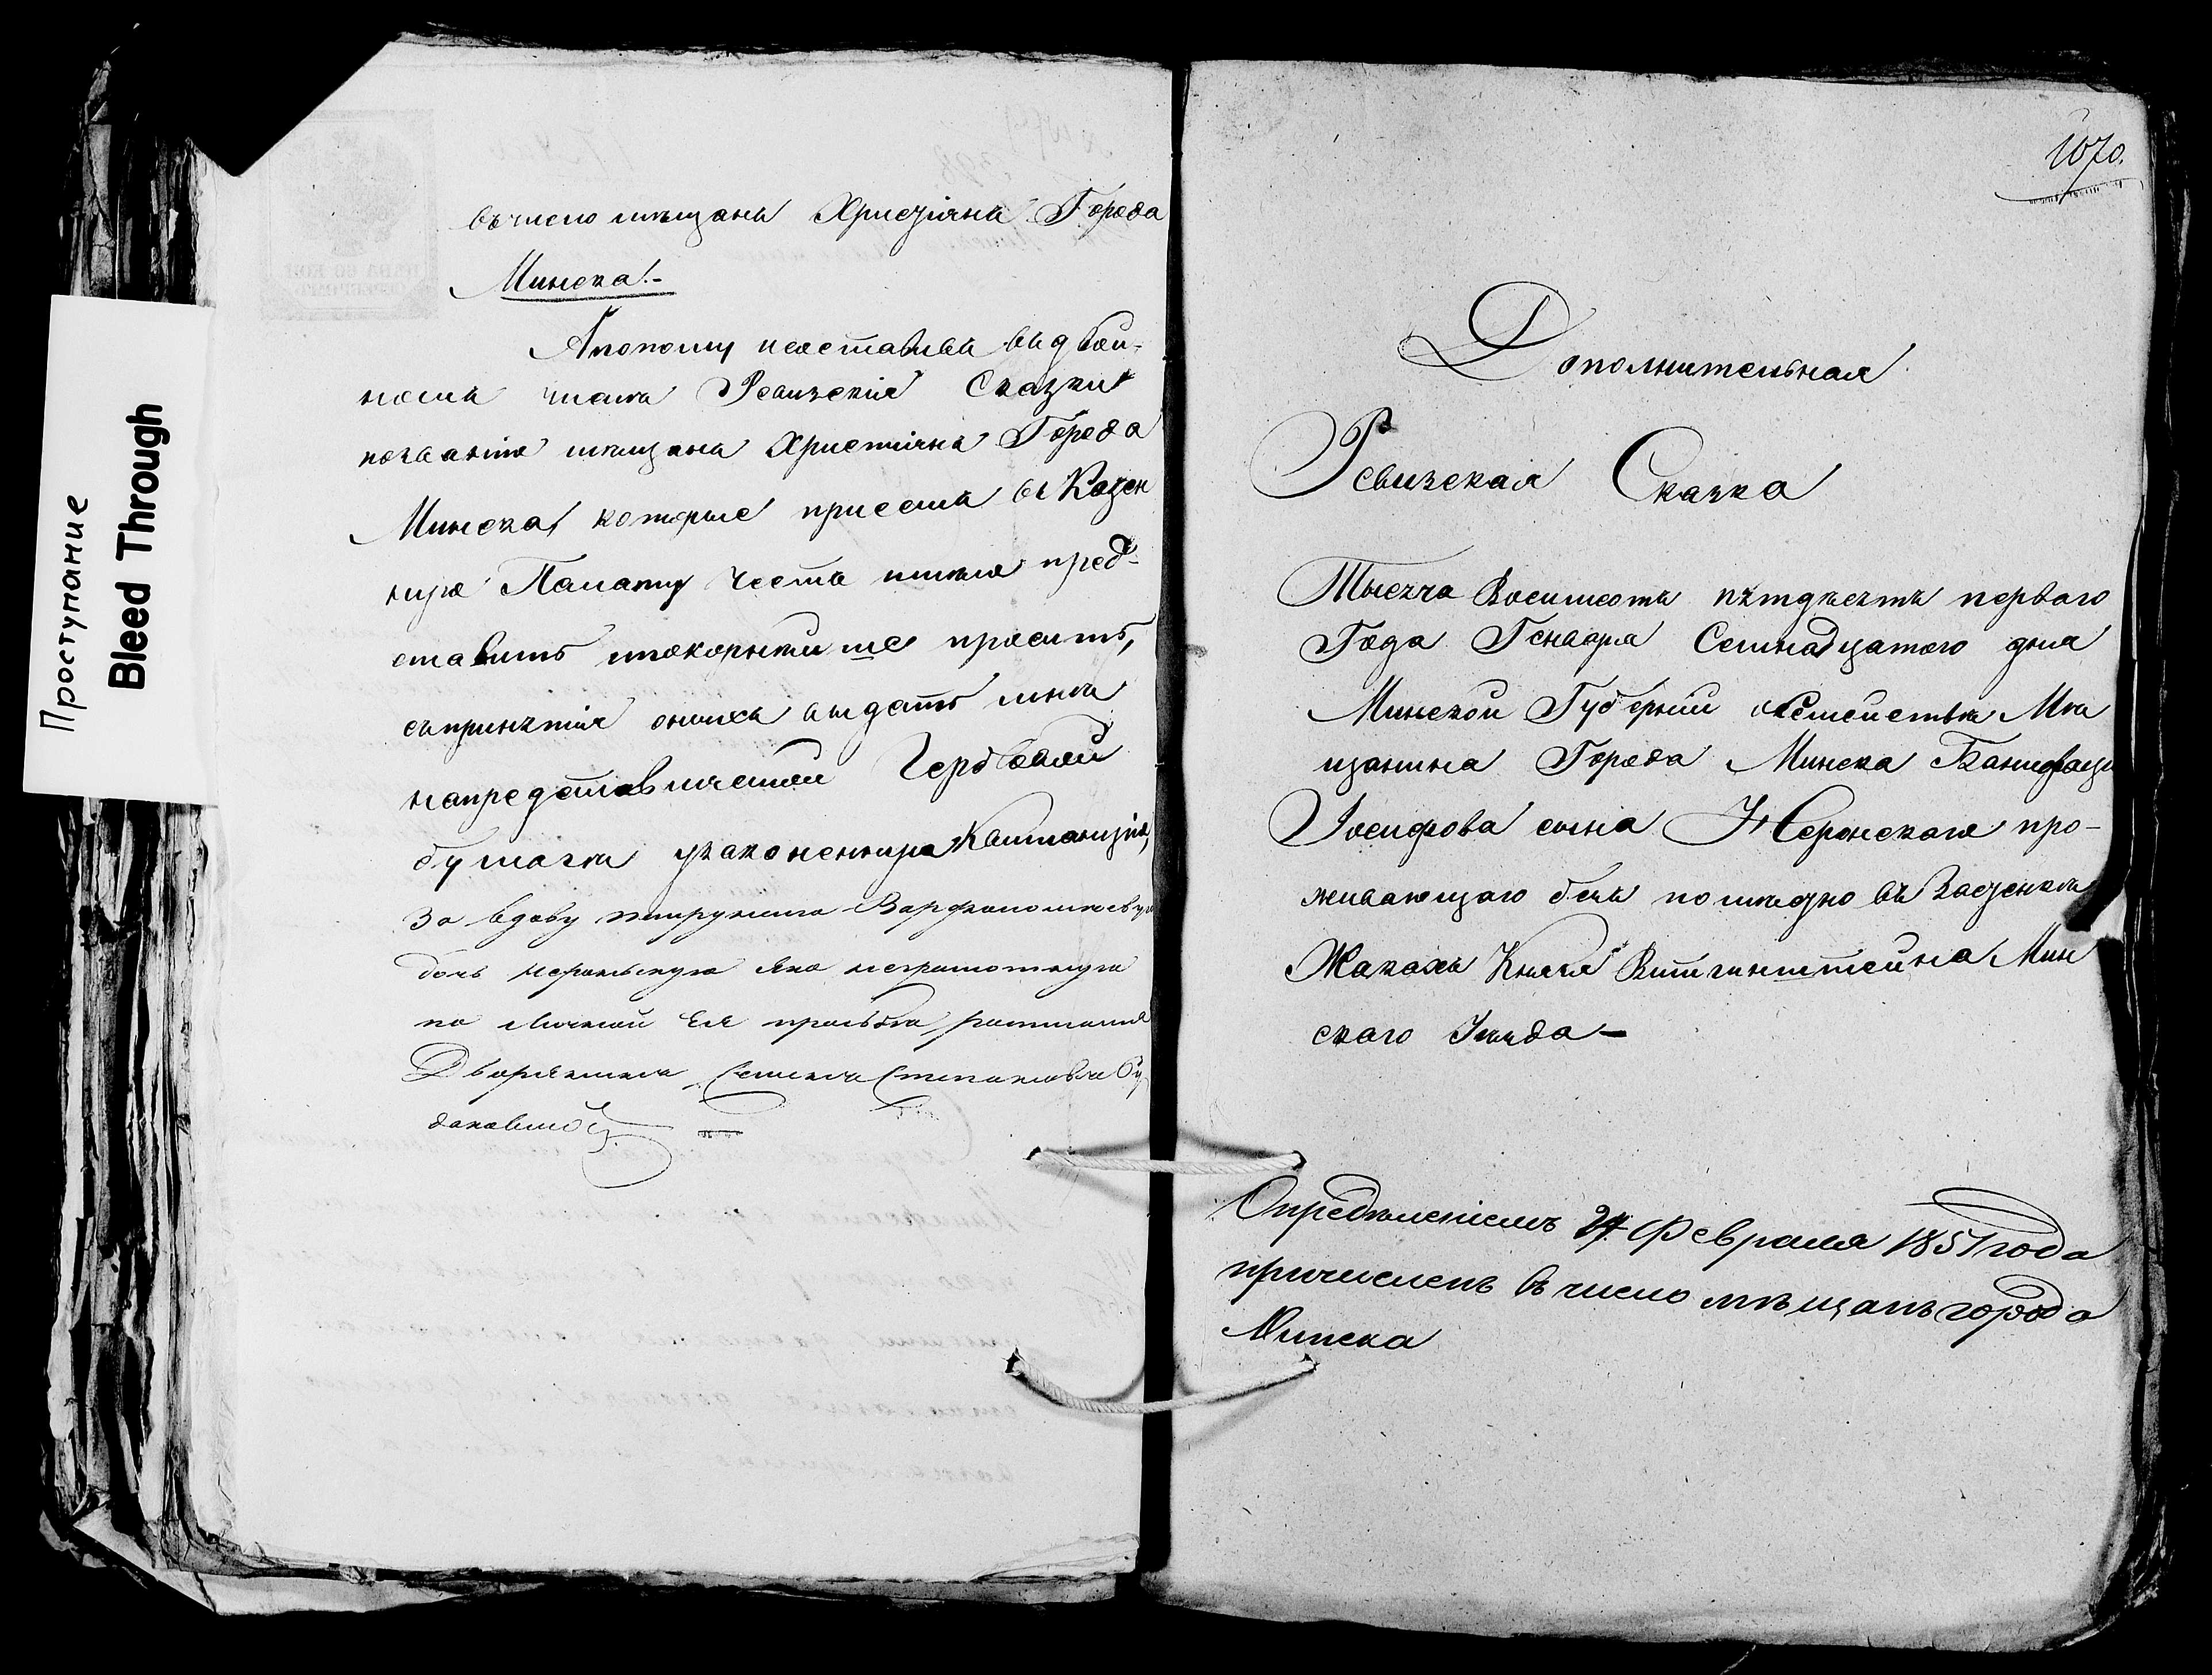 Проступание
Bleed Through
въ число мѣщанъ Христіянъ Города
Минска.-
А потому исоставивъ въ двой-
номъ числѣ Ревизскія Сказки
позванію мѣщанъ Христіянъ Города
Минска, которые присемъ въ Казен
ную Палату честь имѣю пред-
ставить ипокорнѣйше просить,
въ принятія оныхъ выдать мнѣ
на представлѣнной Гербовой
бумаги узаконенную Квитанцію,
За вдову Варфоломѣеву
дочь неграмотную
по личной Ея просьбѣ росписался
Дворянинъ Семенъ Степановъ Бу
1070.
Дополнительная
Ревизская Сказка
Тысяча Восимсотъ пятдѣсятъ перваго
Года Генваря Семнадцатого дня
Минской Губерніи осемействѣ Мѣ
щанина Города Минска Банифаци
Іосифова сына Жеронскаго про-
живающаго безъ помѣстно въ Засценкѣ
Жаках Князя Витгинштейна Мин
скаго Уѣзда-
Опредѣленіемъ 24 Февраля 1851 года
причисленъ въ число мѣщанъ города
Минска